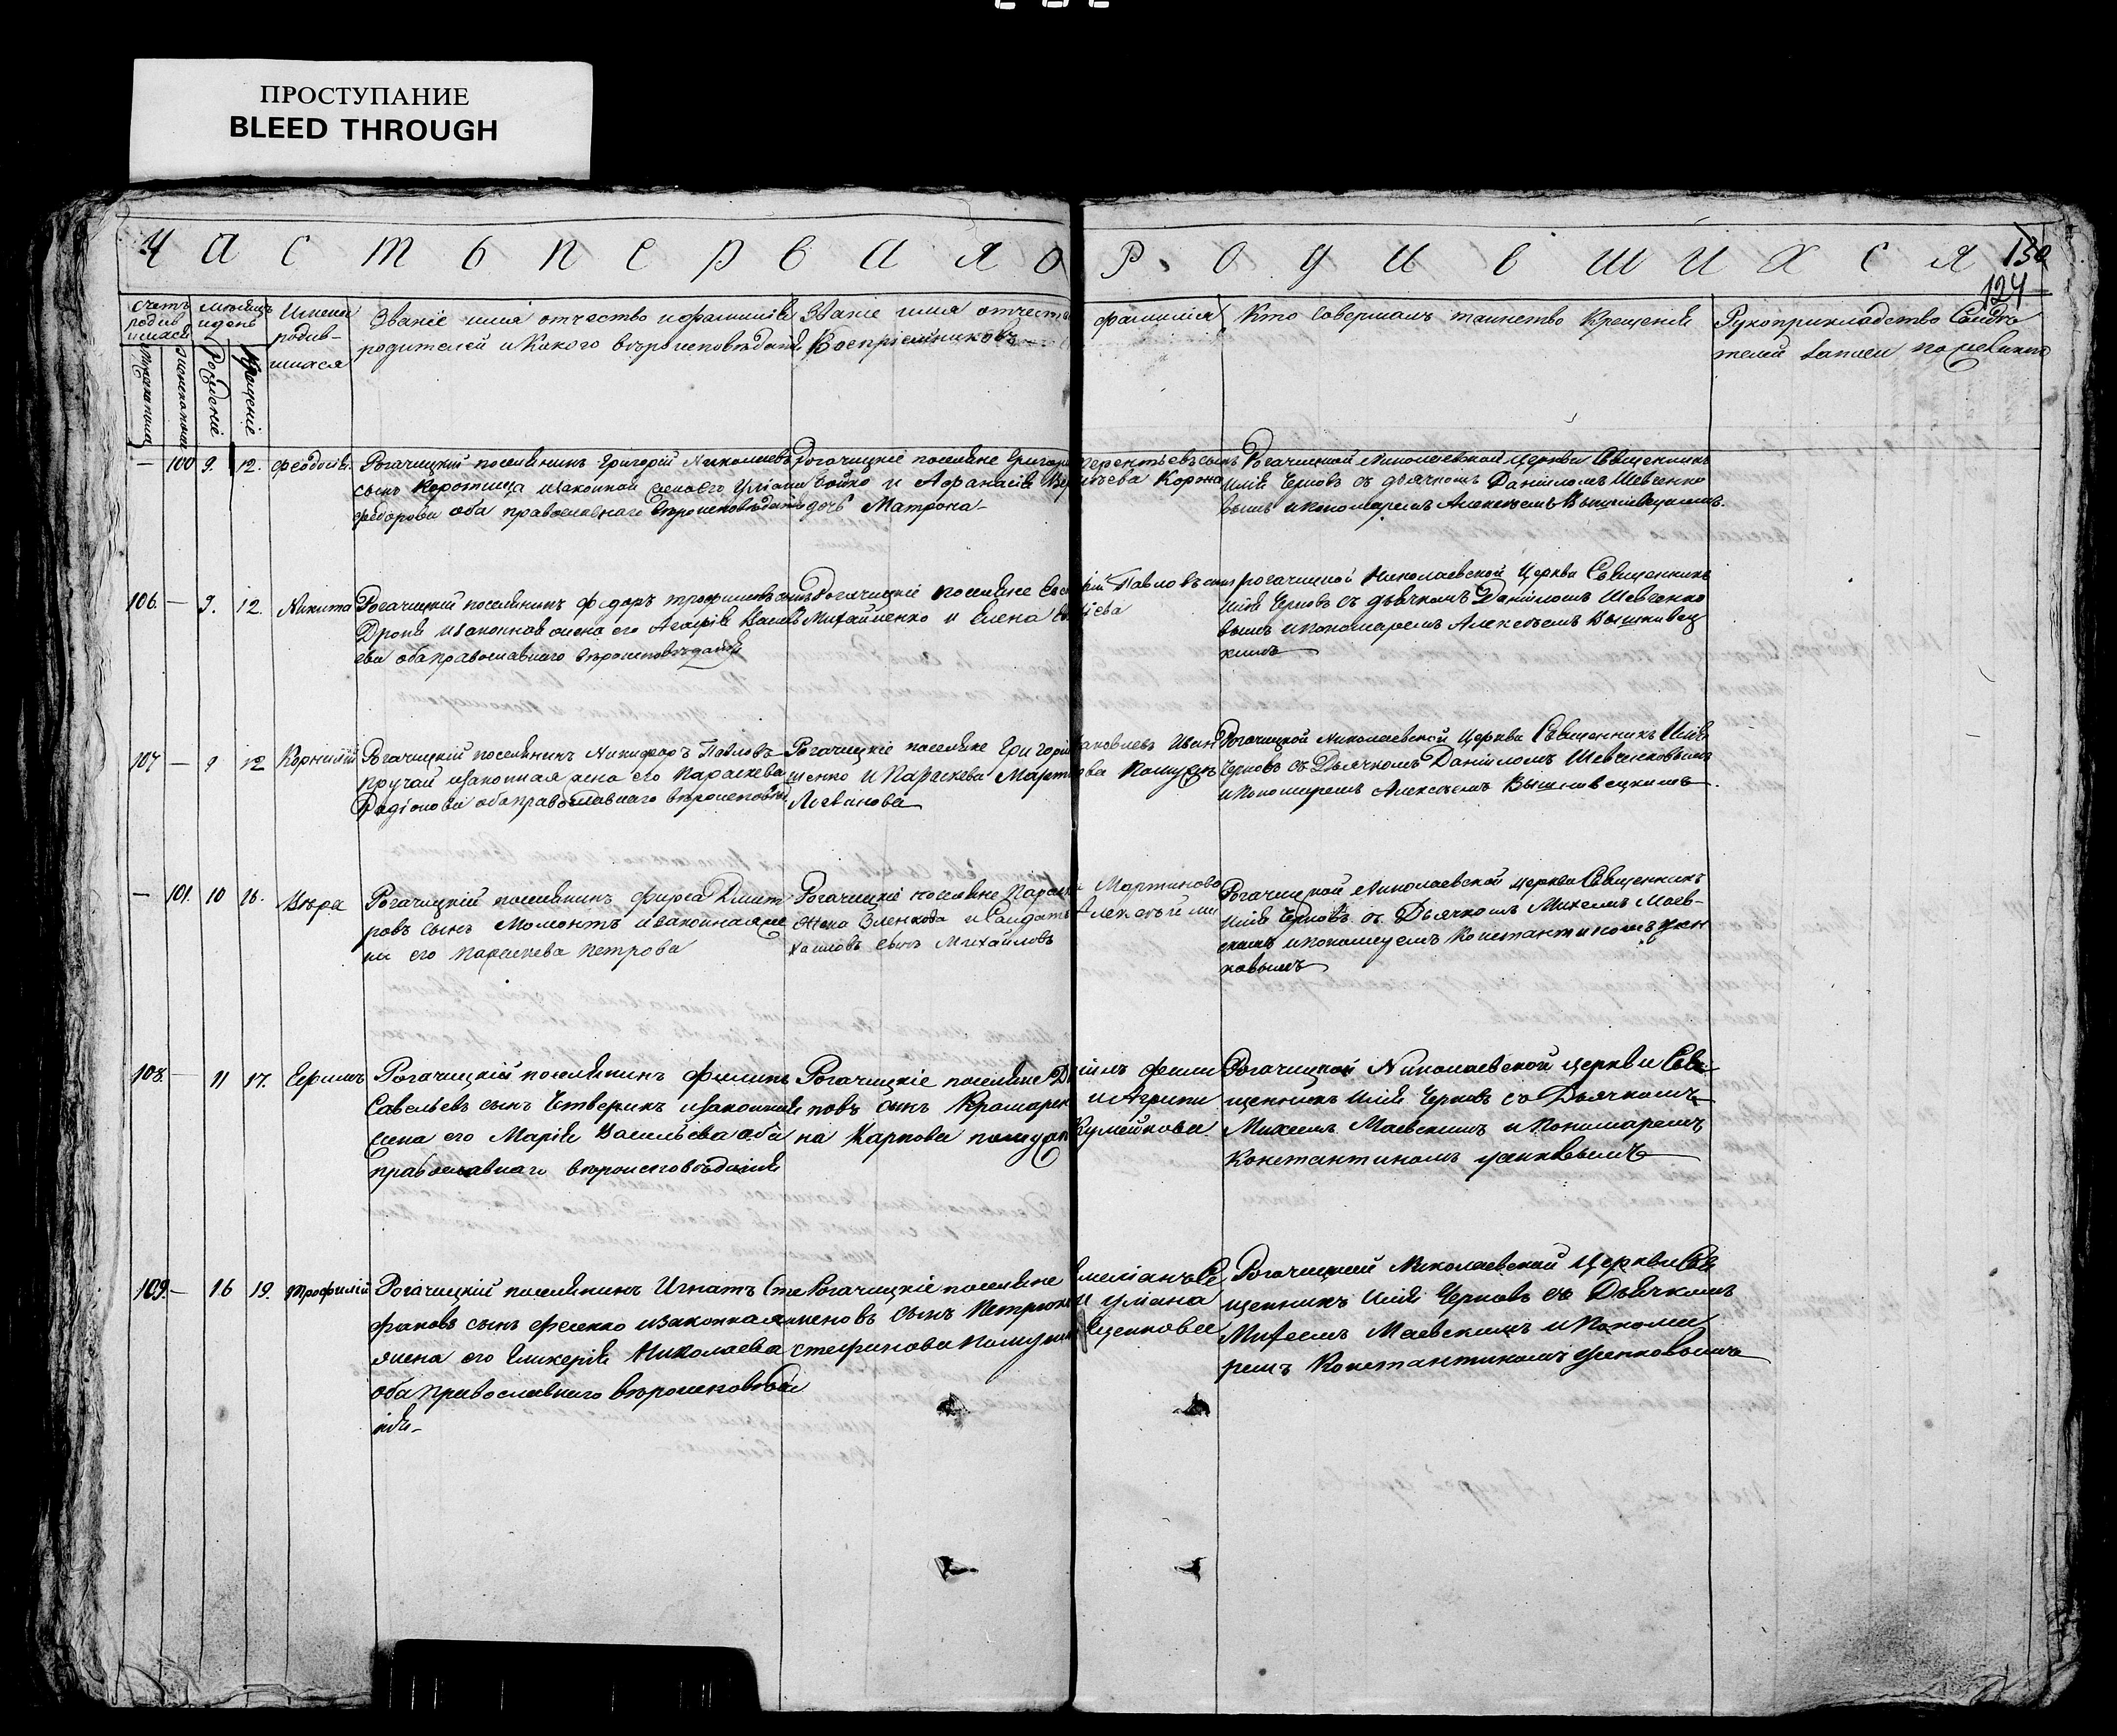 ПРОСТУПАНИЕ
BLEED THROUGH
Часть первая о Родившихся 130
124
Счетъ родившихся
мѣсяцъ и день
Имена родив-шихся
Званіе имя отчество и фамилія родителей и Какого вѣроисповѣданія
Званіе имя отчество фамилія Воспріемниковъ
Кто Совершалъ таинство Крещенія
Рукоприкладство Свидѣтелей записи по желанію
Рожденіе
Крещеніе
— 100 9. 12. Феодосія.
Рогачицкій поселянинъ Григорій Николаевъ
сынъ Коротица и законная жена его Уліана
Федорова оба православнаго вѣроисповѣданія
Рогачицкіе поселяне Григорій Терентьевъ сынъ
Бойко и Афанасія Коржа
дочь Матрона
Рогачицкой Николаевской Церкви Священникъ
Илія Черновъ съ дьячкомъ Даніиломъ Шевченко
вымъ и пономаремъ Алексѣемъ Вышнивецкимъ.
106. — 9. 12. Никита
Рогачицкій поселянинъ Федоръ Трофимовъ сынъ
и законная жена его Агафія Василь
ева оба православнаго вѣроисповѣданія
Рогачицкіе поселяне Павловъ сынъ
Михайленко и Елена
Рогачицкой Николаевской Церкви Священникъ
Илія Черновъ съ дьячкомъ Даніиломъ Шевченко
вымъ и пономаремъ Алексѣемъ Вышнивец
кимъ
107 — 9 12 Корнилій
Рогачицкій поселянинъ Никифоръ Павловъ
Пругай и законная жена его Параскева
Радіонова оба православнаго вѣроисповѣд
Рогачицкіе поселяне Григорій Яковлевъ Иван
щенко и Параскева Мартинова
Логвинова
Рогачицкой Николаевской Церкви Священникъ Илія
Черновъ съ Дьячкомъ Даніиломъ Шевченковымъ
и пономаремъ Алексѣемъ Вышнивецкимъ.
— 101. 10 16. Вѣра
Рогачицкій поселянинъ Фирса Димит
ровъ сынъ Момонтъ и законная же
на его Параскева Петрова
Рогачицкіе поселяне Мартинова
жена и Солдатъ Алексѣй Ми
хаиловъ сынъ Михайловъ
Рогачицкой Николаевской Церкви Священникъ
Илія Черновъ съ Дьячкомъ Михеемъ Маев-
скимъ и пономаремъ Константиномъ
новымъ
108. — 11 17. Ефимъ
Рогачицкій поселянинъ Филипъ
Савельевъ сынъ Четверикъ и законная
жена его Марія Васильева оба
православнаго вѣроисповѣданія
Рогачицкіе поселяне Фили
повъ сынъ Крамарен и Агрипи
на Карпова
Рогачицкой Николаевской Церкви Свя-
щенникъ Илія Черновъ съ Дьячкомъ
Михеемъ Маевскимъ и Пономаремъ
Константиномъ
109. — 16 19. Трофимій
Рогачицкій поселянинъ Игнатъ Сте
фановъ сынъ Фесенко и законная
жена его Гликерія Николаева
оба православнаго вѣроисповѣдан
ія.
Рогачицкіе поселяне Емеліанъ Се
меновъ сынъ и Уліана
Стефанова
Рогачицкой Николаевской Церкви Свя
щенникъ Илія Черновъ съ Дьячкомъ
Михеемъ Маевскимъ и Понома
ремъ Константиномъ